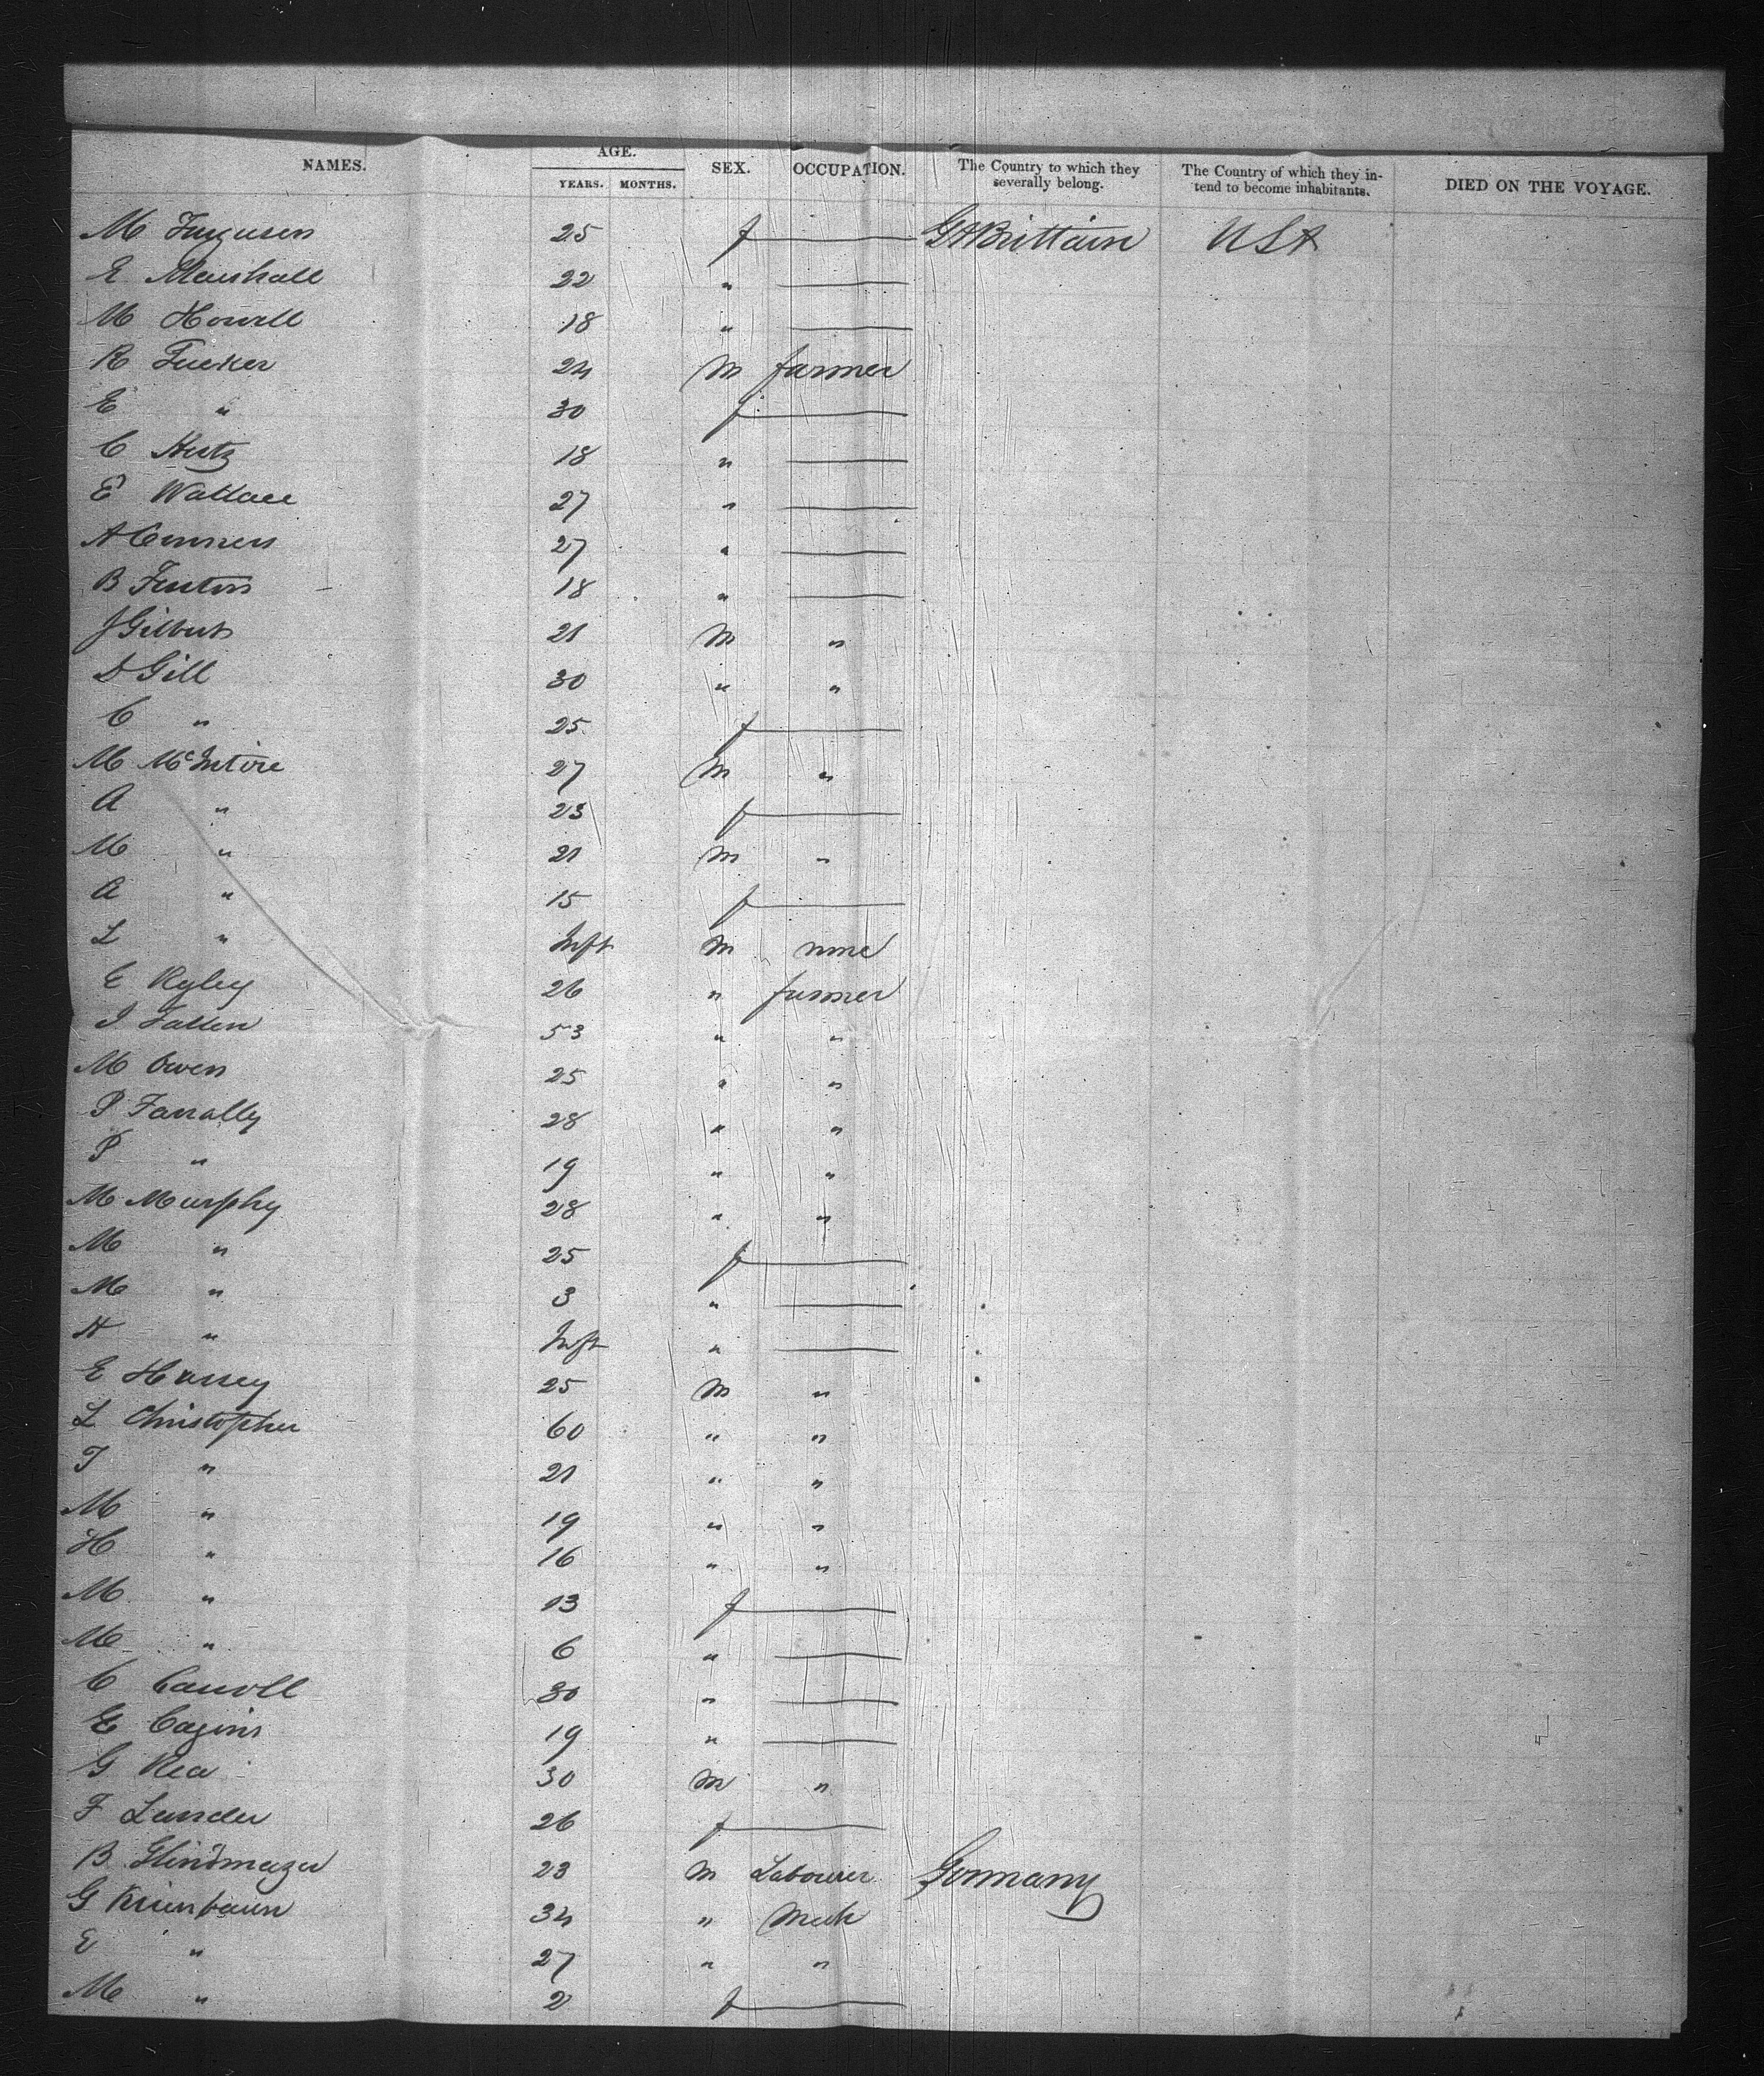 NAMES. AGE. SEX. OCCUPATION. The Country to which they severally belong. The Country of which they intend to become inhabitants. DIED ON THE VOYAGE.
YEARS. MONTHS.
M Ferguson 25 f — Gt Brittain USA
E Marshall 22 " —
M Howell 18 " —
R Tucker 24 M farmer
E " 30 f —
C Hertz 18 " —
E Wallace 27 " —
A Connen 27 " —
B Fenton 18 " —
J Gilbert 21 M "
D Gill 30 " "
C " 25 f —
M McIntire 27 M "
A " 23 f —
M " 21 M "
A " 15 f —
L " Inft M none
E Ryley 26 " farmer
J Fallen 53 " "
M Owen 25 " "
P Farrally 28 " "
P " 19 " "
M Murphy 28 " "
M " 25 f —
M " 3 " —
A " Inft " —
E Hussey 25 M "
L Christopher 60 " "
T " 21 " "
M " 19 " "
H " 16 " "
M " 13 f —
M " 6 " —
C Carroll 30 " —
E Cagins 19 " —
G Rea 30 M "
F Lander 26 f —
B 23 M Labourer Germany
G 34 " Mech
E " 27 " "
M " 2 f —